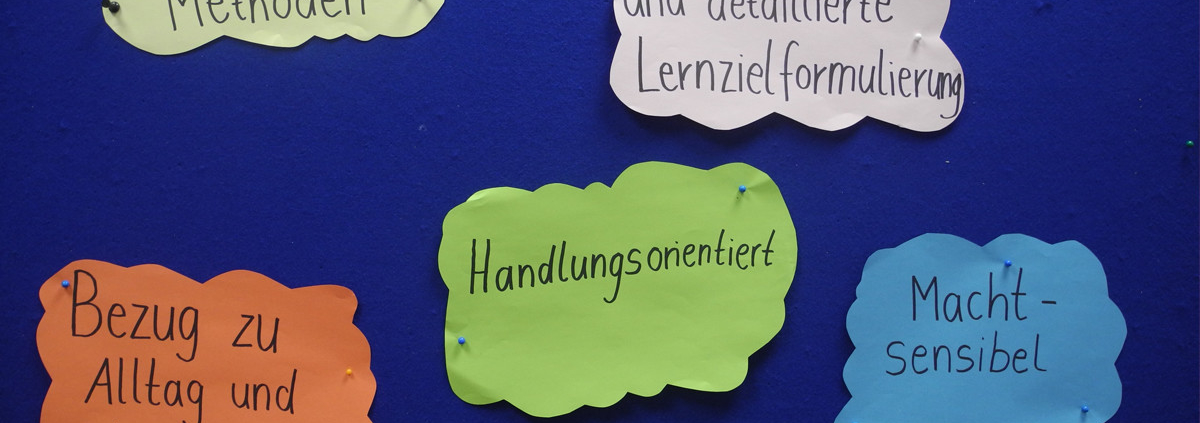 Methoden
und detaillierte
Lernzielformulierung
Handlungsorientiert
Bezug zu
Alltag und
Macht-
sensibel